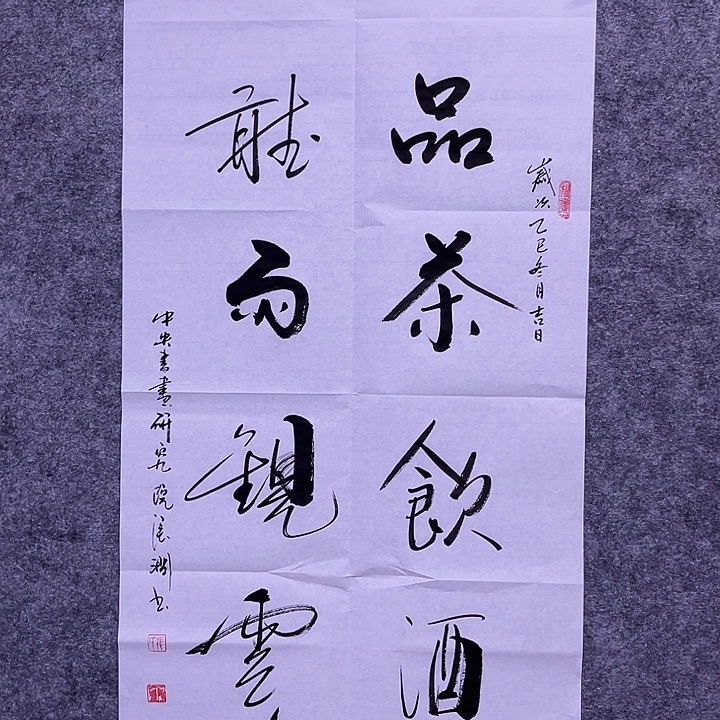 歲次乙巳冬月吉日
品茶飲酒
聽雨觀雲
中央書畫研究院